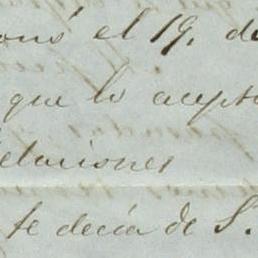 el 19. de
que lo acepto
elaciones
te decia de S.